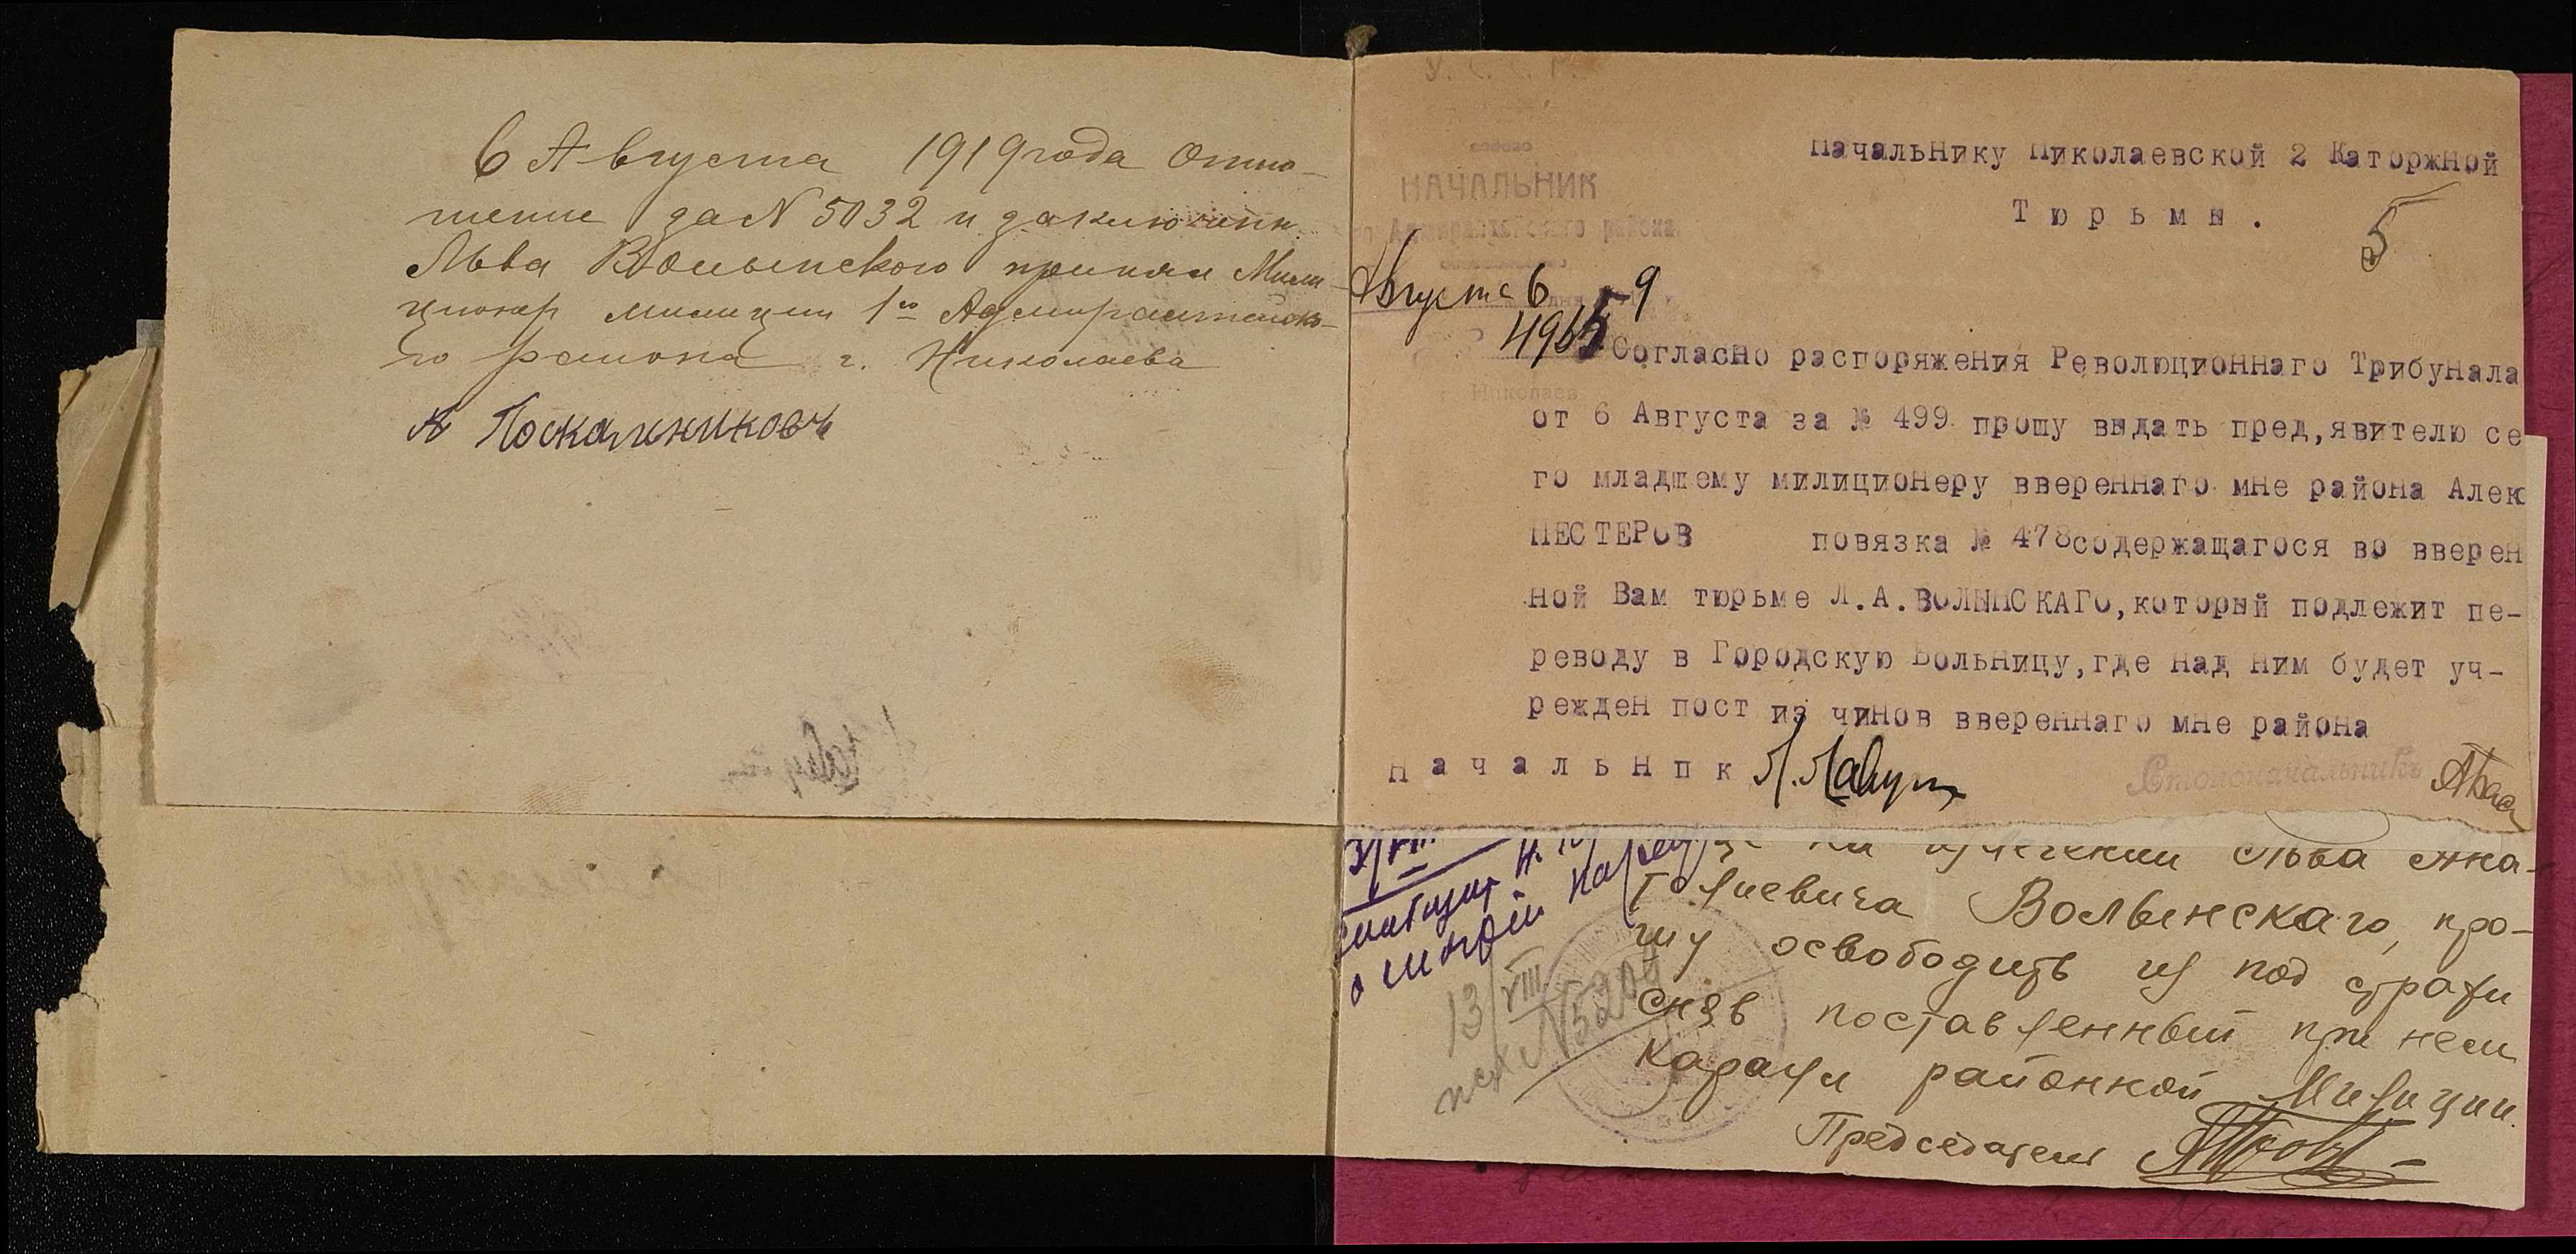 6 Августа 1919 года Отно-
шение за N 5032 и заключенн.
Льва Волынского принял Мили-
ционер милиции 1го Адмиралтейско-
го района г. Николаева
У. С. С. Р.
НАЧАЛЬНИК
Адмиралтейского района
Августа 6 дня 9
4965
Николаев
Начальнику Николаевской 2 Каторжной
Тюрьмы.
5
Согласно распоряжения Революционнаго Трибунала
от 6 Августа за № 499 прошу выдать пред,явителю се
го младшему милиционеру ввереннаго мне района Алек
НЕСТЕРОВ повязка № 478 содержащагося во вверен
ной Вам тюрьме Л.А.ВОЛЫНСКАГО,который подлежит пе-
реводу в Городскую Больницу,где над ним будет уч-
режден пост из чинов ввереннаго мне района
Начальник
Столоначальникъ
Льва Ана-
толиевича Волынскаго, про-
шу освободить из под стражи
сняв поставленный при нем
караул районной Милиции.
Председатель
13/VIII
N5204